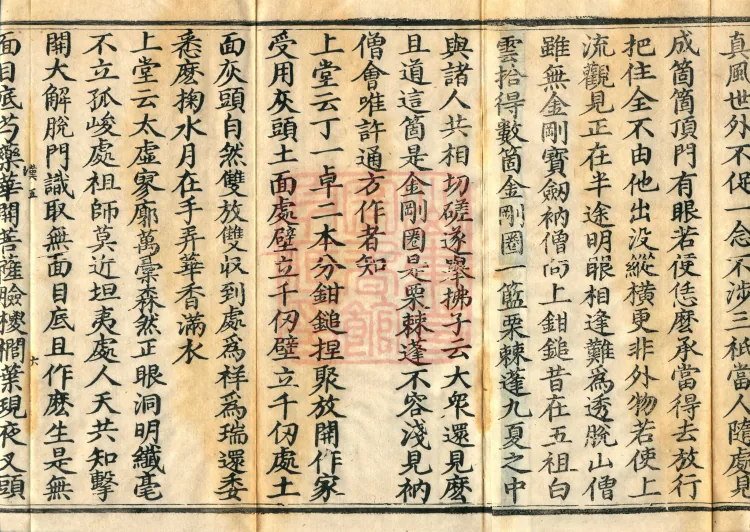 真風世外不促一念不涉三祇當人隨處見
成箇箇頂門有眼若便恁麽承當得去放行
把住全不由他出没縱橫更非外物若使上
流觀見正在半途明眼相逢難爲透脫山僧
雖無金剛寶劒衲僧向上鉗鎚昔在五祖白
雲拾得數箇金剛圈一籃栗棘蓬九夏之中
與諸人共相切磋遂舉拂子云大衆還見麽
且道這箇是金剛圈是栗棘蓬不容淺見衲
僧會唯許通方作者知
上堂云丁一卓二本分鉗鎚捏聚放開作家
受用灰頭土面處壁立千仞壁立千仞處土
面灰頭自然雙放雙収到處爲祥爲瑞還委
悉麽掬水月在手弄華香滿衣
上堂云太虛寥廓萬彙森然正眼洞明纖毫
不立孤峻處祖師莫近坦夷處人天共知擊
開大解脫門識取無面目底且作麽生是無
漢五 六
面目底芍藥華開菩薩臉椶櫚葉現夜叉頭